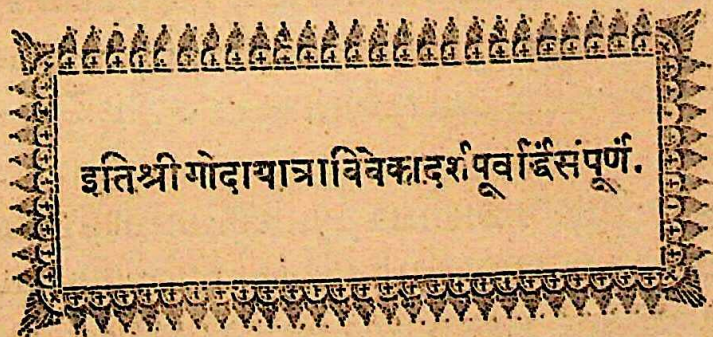 इतिश्रीगोदायात्राविवेकादर्शपूर्वार्द्धसंपूर्णं.